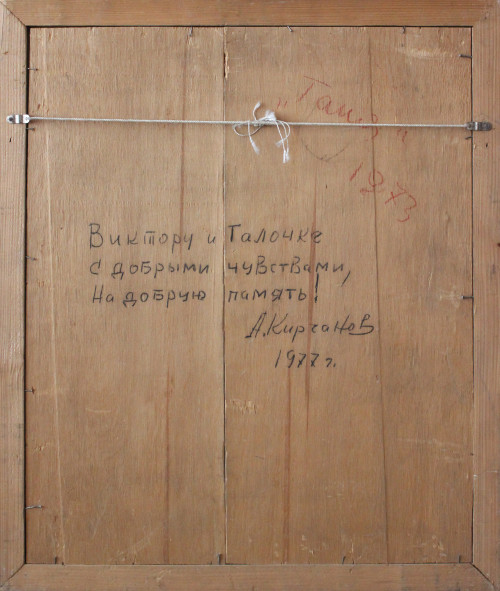 "Танец"
1973
Виктору и Галочке
с добрыми чувствами,
на добрую память!
А. Кирчанов
1977 г.